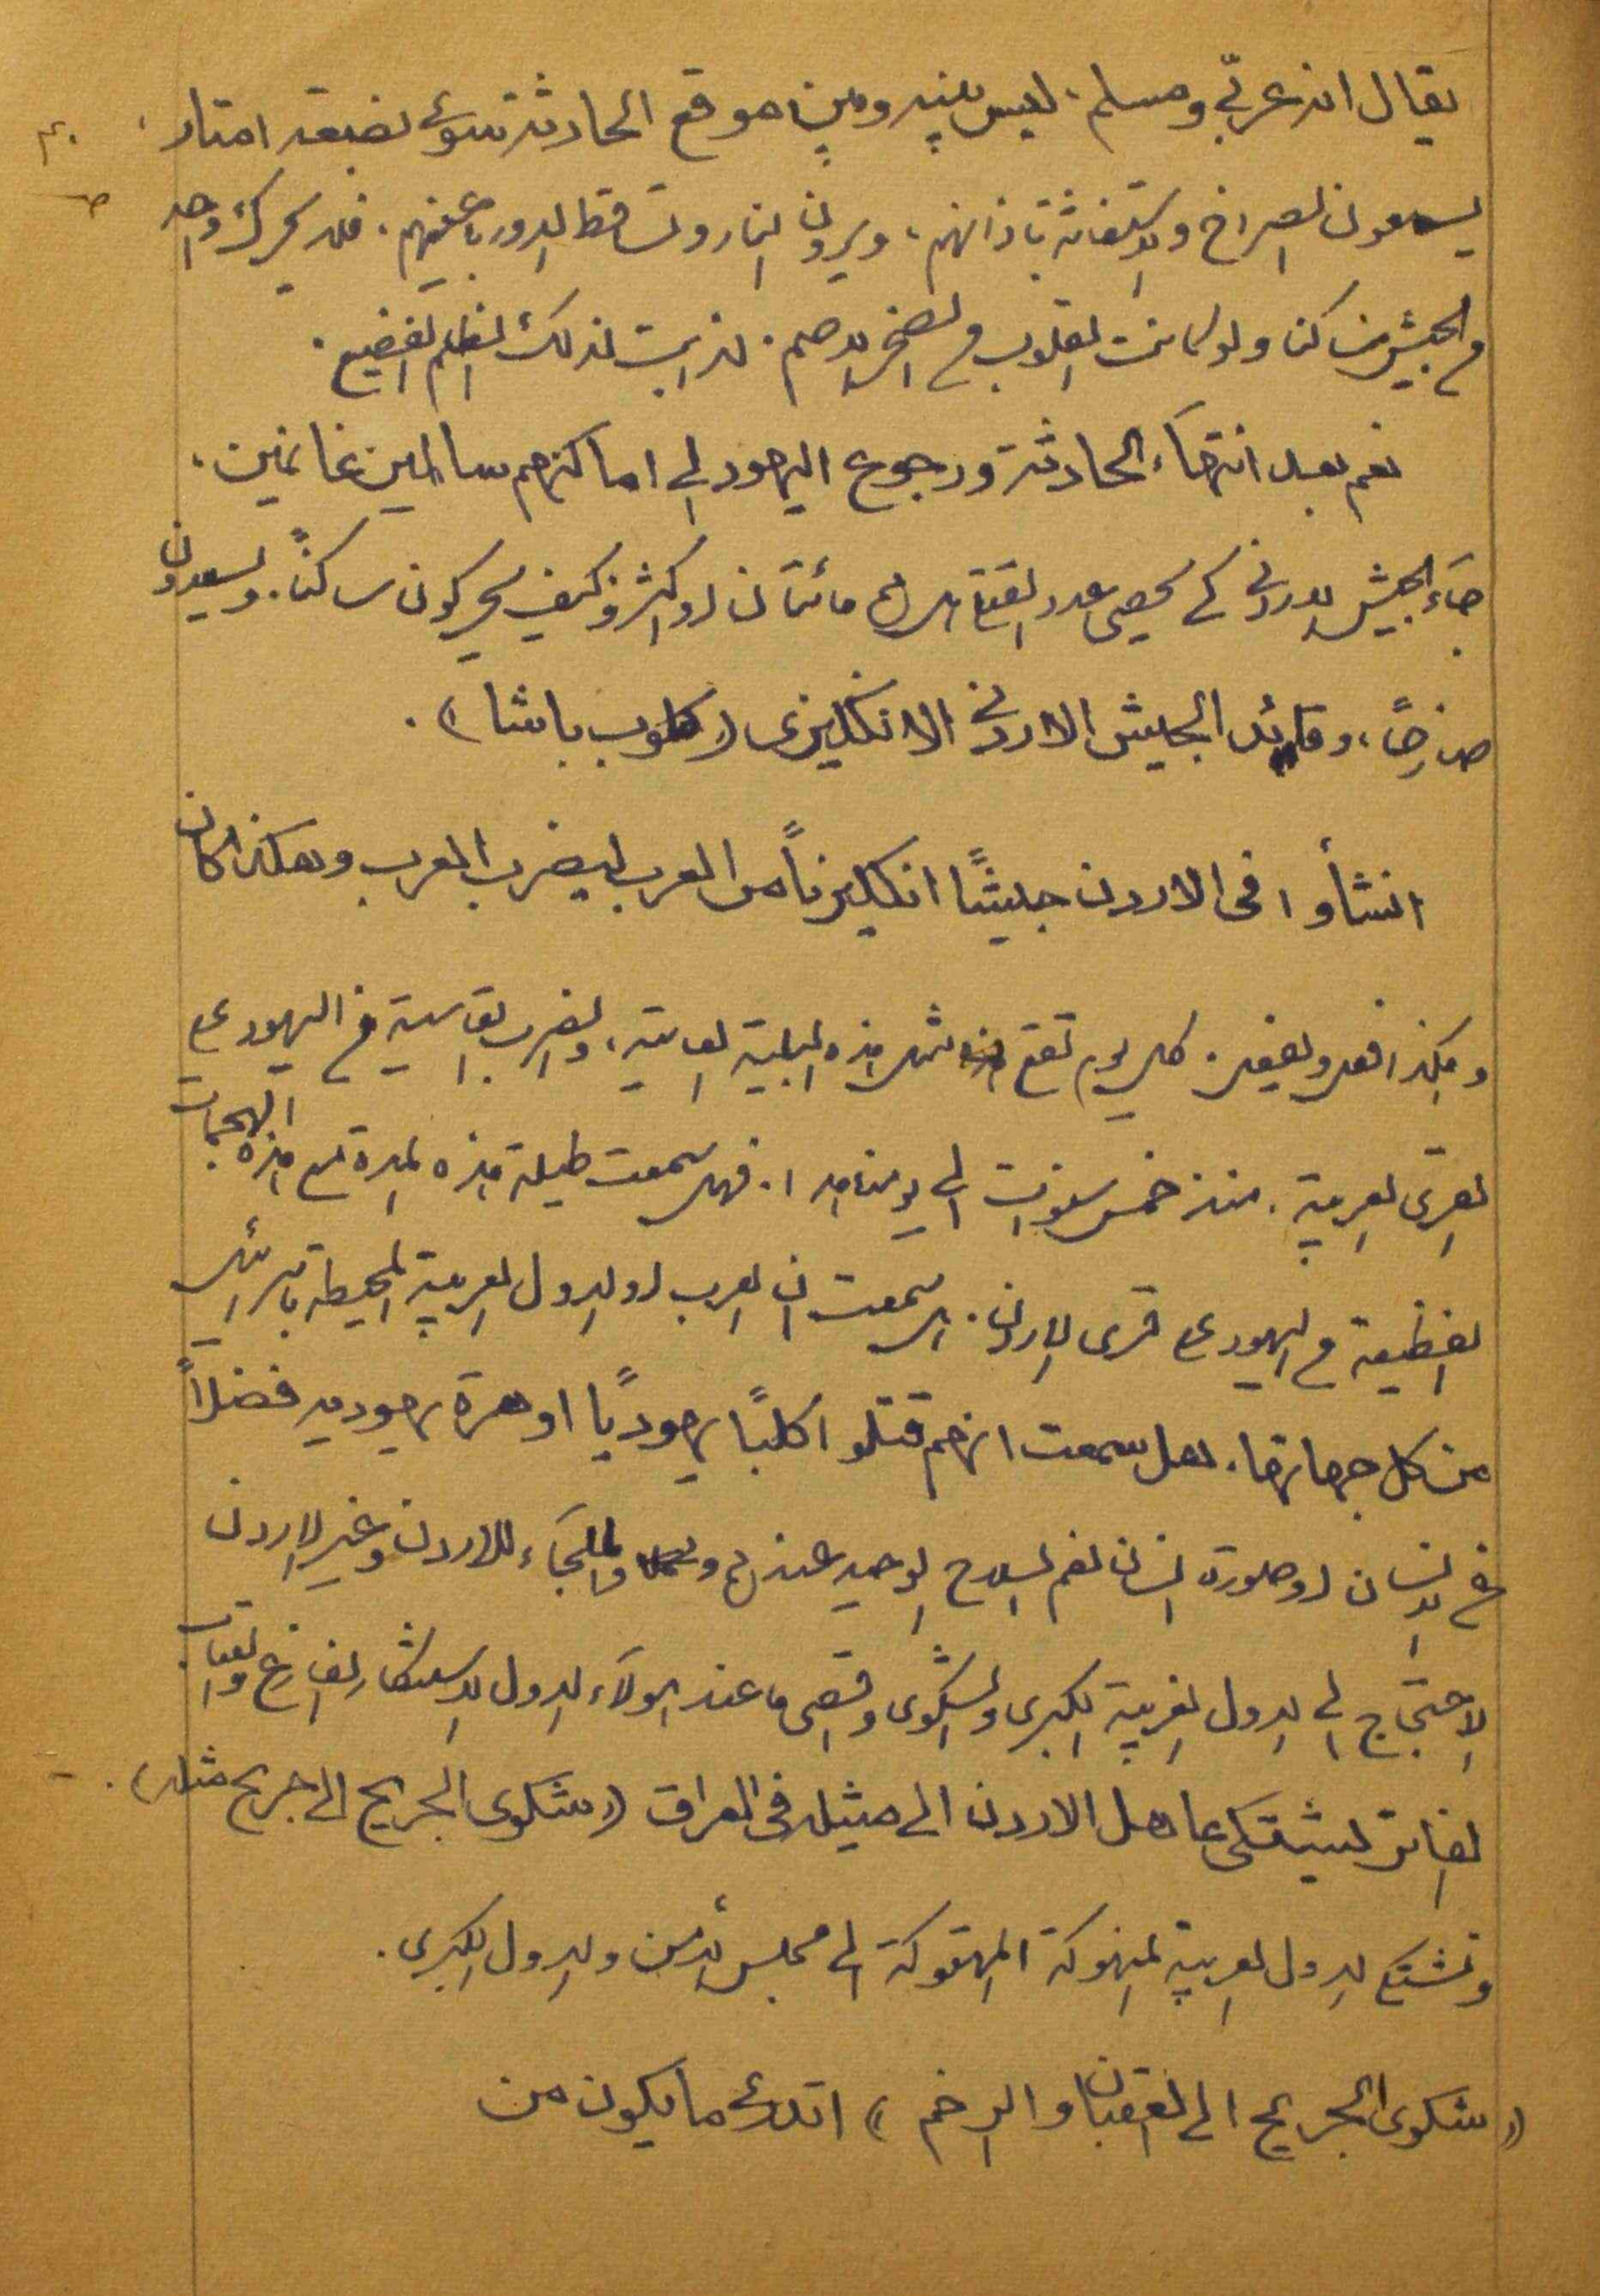 يقال انه عربّي ومسلم، ليس بينه وبين موقع الحادثة سوى بضعة امتار،
يسمعون الصراخ والاستغاثة باذانهم، ويرون النار وتساقط الدور باعينهم. فلا يحرك واحد
من الجيش ساكنا ولو كانت القلوب من الصخر الاصم. لذابت لذلك الظلم الفضيع.
نعم بعد انتهاء الحادثة ورجوع اليهود الى اماكنهم سالمين غانمين،
جاء الجيش الاردني كي يحصي عدد القتلى هل هم مائتان او اكثر وكيف يحركون ساكناً. ويسعدون
صارخاً، وقائد الجيش الاردني الانكليزي (كلوب باشا).
انشأوا في الاردن جيشًا انكليزياً من العرب ليضرب العرب وهكذا كان
وهكذا فعل ويفعل. كل يوم تقع مثل هذه البلية القاسية، والضربة القاسية من اليهود على
القرى العربية. منذ خمس سنوات الى يومنا هذا. فهل سمعت طيلة هذه المدة مع هذه الهجمات
الفظيعة من اليهود على قرى الاردن. هل سمعت ان العرب او الدول العربية المحيطة باسرائيل
من كل جهاتها. هل سمعت انهم قتلوا كلبًا يهوديًا او هرة يهوديه فضلاً
عن الانسان او صورة انسان نعم السلاح الوحيد عندهم والملجاء للاردن وغير الاردن
الاحتجاج الى الدول الغربية الكبرى والشكوى واقصى ما عند هولاء الدول الاستنكار الفارغ والعتاب
الفاتر ليشتكى عاهل الاردن الى مثيله في العراق (شكوى الجريح الى جريح مثله).
وتشتكي الدول العربية المنهوكة المهتوكة الى مجلس الأمن والدول الكبرى.
(شكوى الجريح الى العقبان والرخم) اتدري ما يكون من